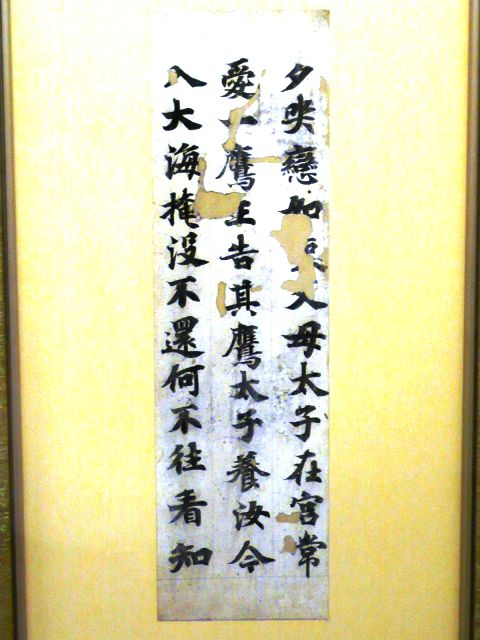 夕哭戀如母太子在宮常
愛一鷹王告其鷹太子養汝今
入大海掩没不還何不往看知